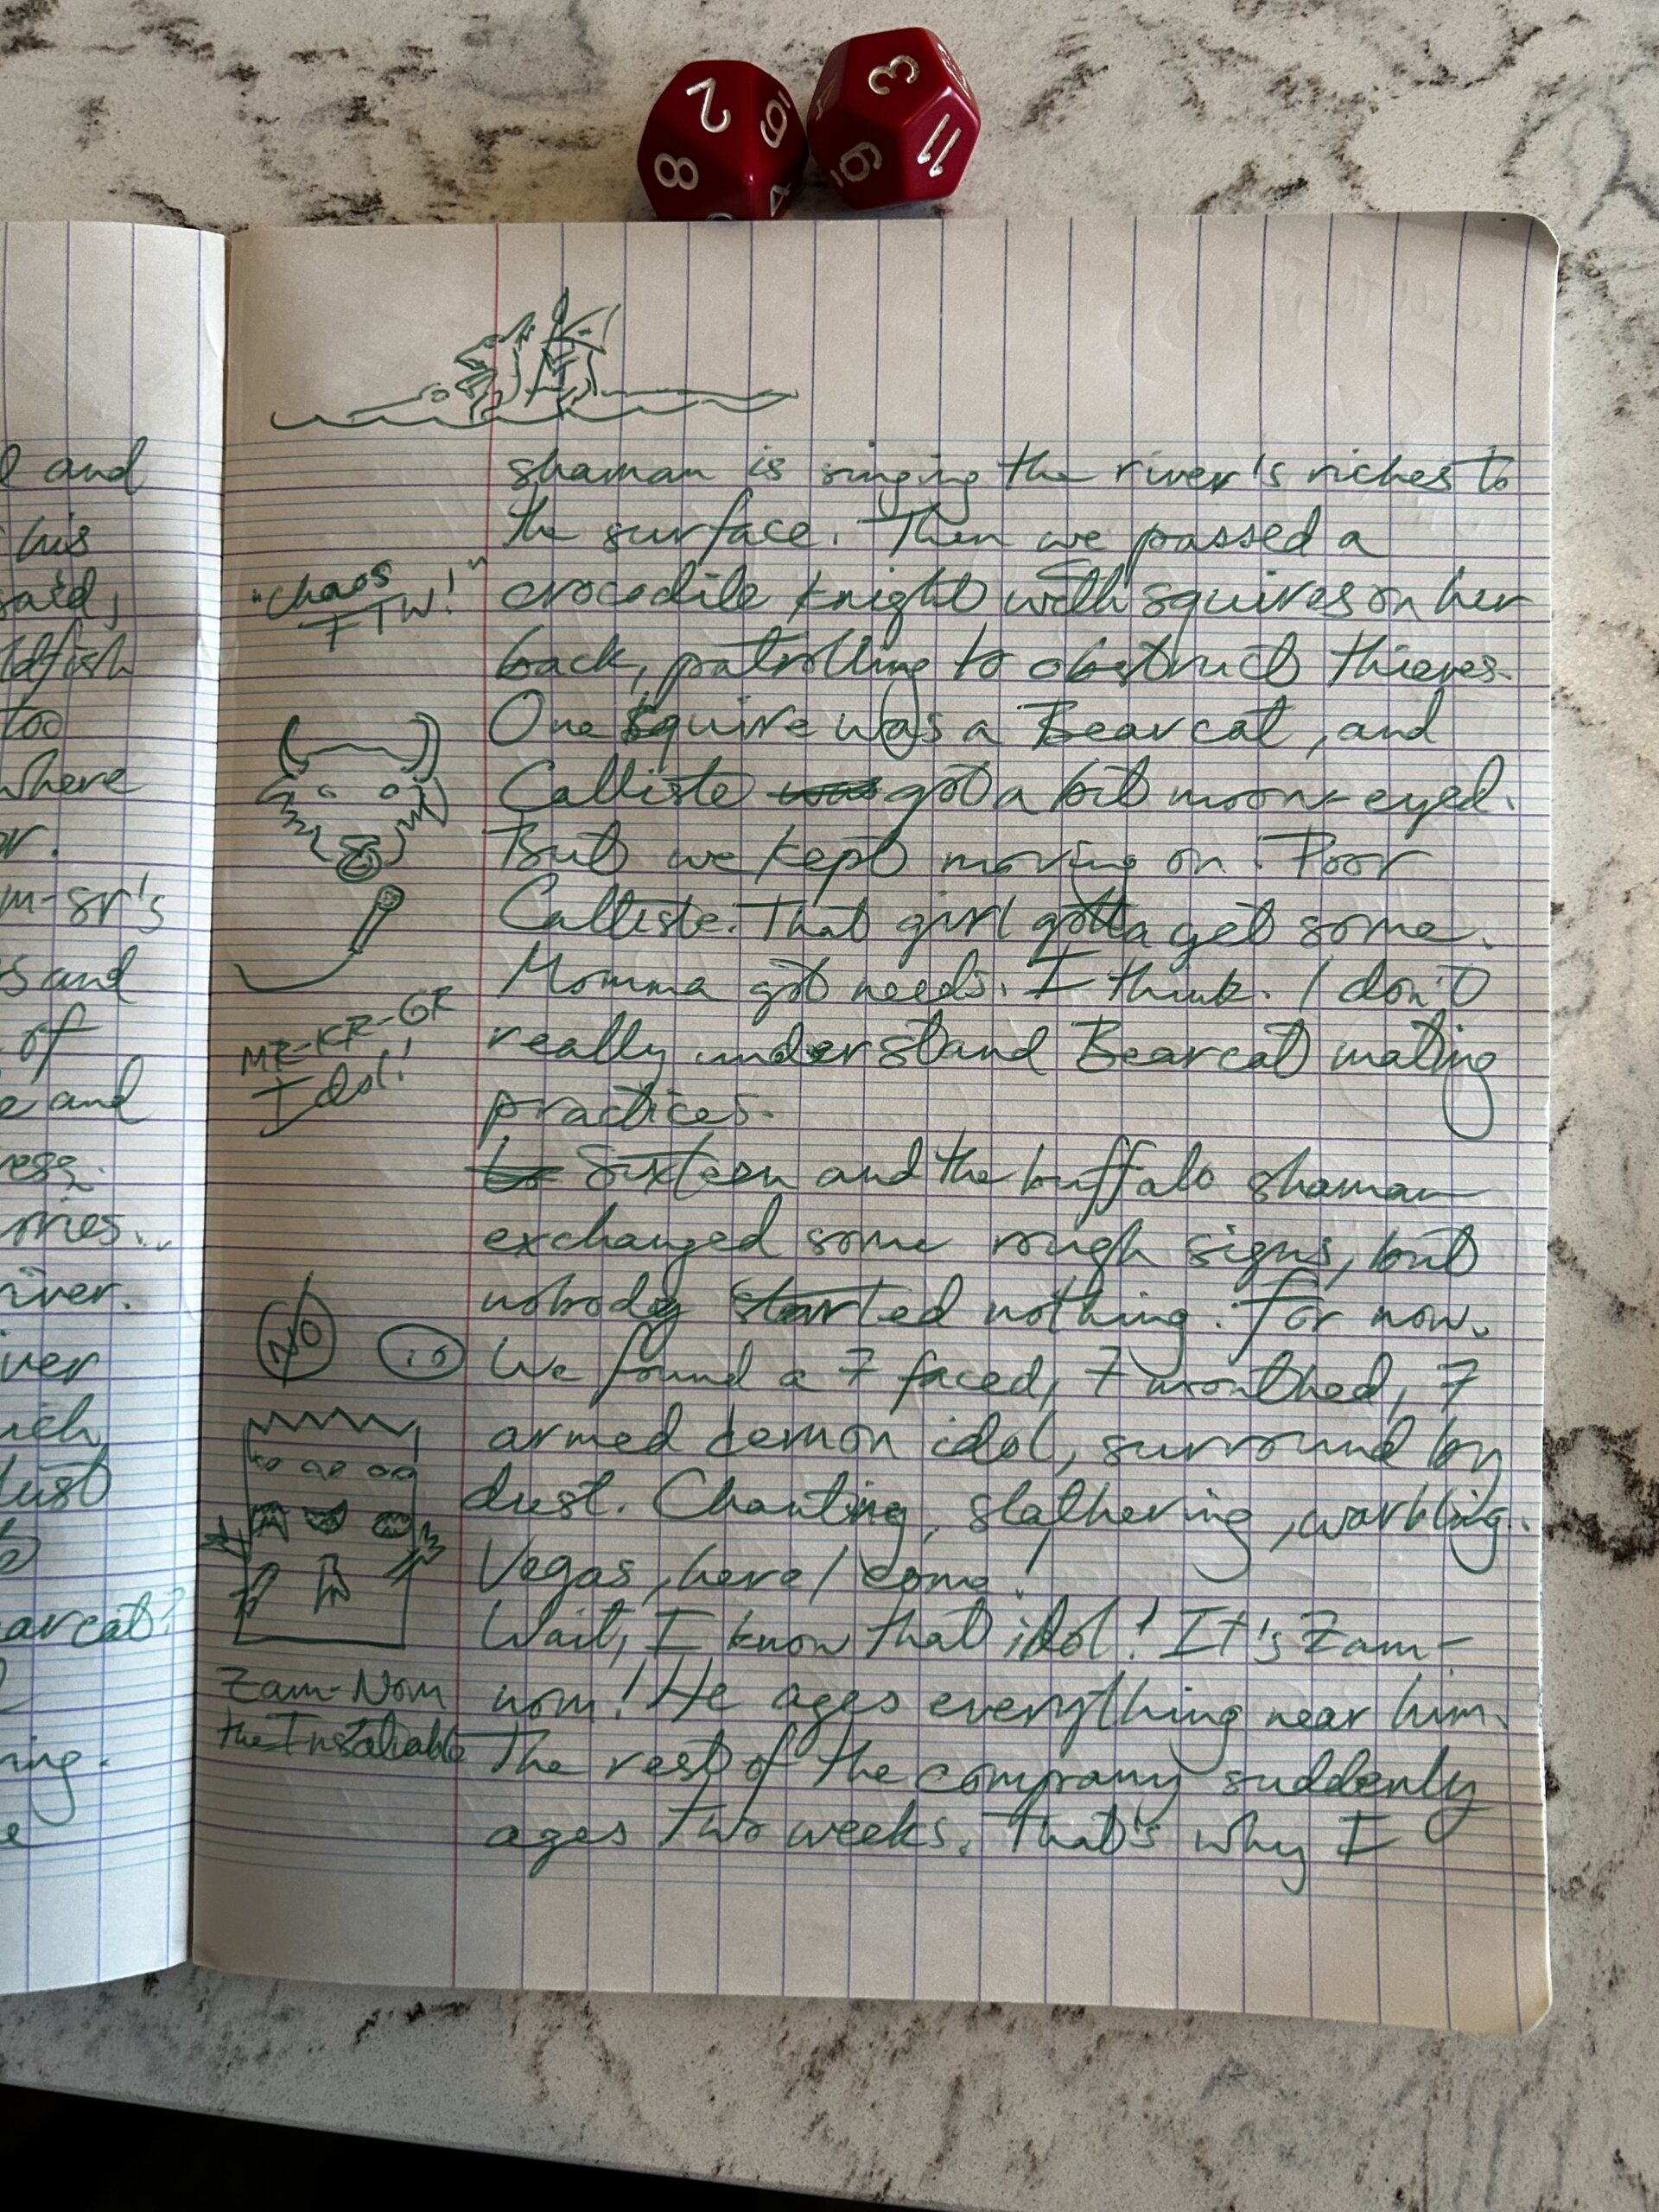 2
8
9
4
3
11
9
l and
his
said,
ldfish
too
where
or.
m-sr's
s and
of
e and
ress.
ories...
river.
iver
ich
dust
earcat?
ring.
e
shaman is singing the river's riches to
the surface. Then we passed a
"chaos
FTW!"
crocodile knight with squires on her
back, patrolling to obstruct thieves.
One squire was a Bearcat, and
Calliste was got a bit moon-eyed.
But we kept moving on. Poor
Calliste. That girl gotta get some.
Momma got needs. I think. I don't
MR-KR-GR
Idol!
really understand Bearcat mating
practices.
Sixteen and the buffalo shaman
exchanged some rough signs, but
nobody started nothing. For now.
NO
We found a 7 faced, 7 mouthed, 7
armed demon idol, surround by
dust. Chanting, slathering, warbling.
Vegas, here I come!
Wait, I know that idol! It's Zam-
Zam-Nom
nom! He ages everything near him.
the Insatiable
The rest of the company suddenly
ages two weeks. That's why I